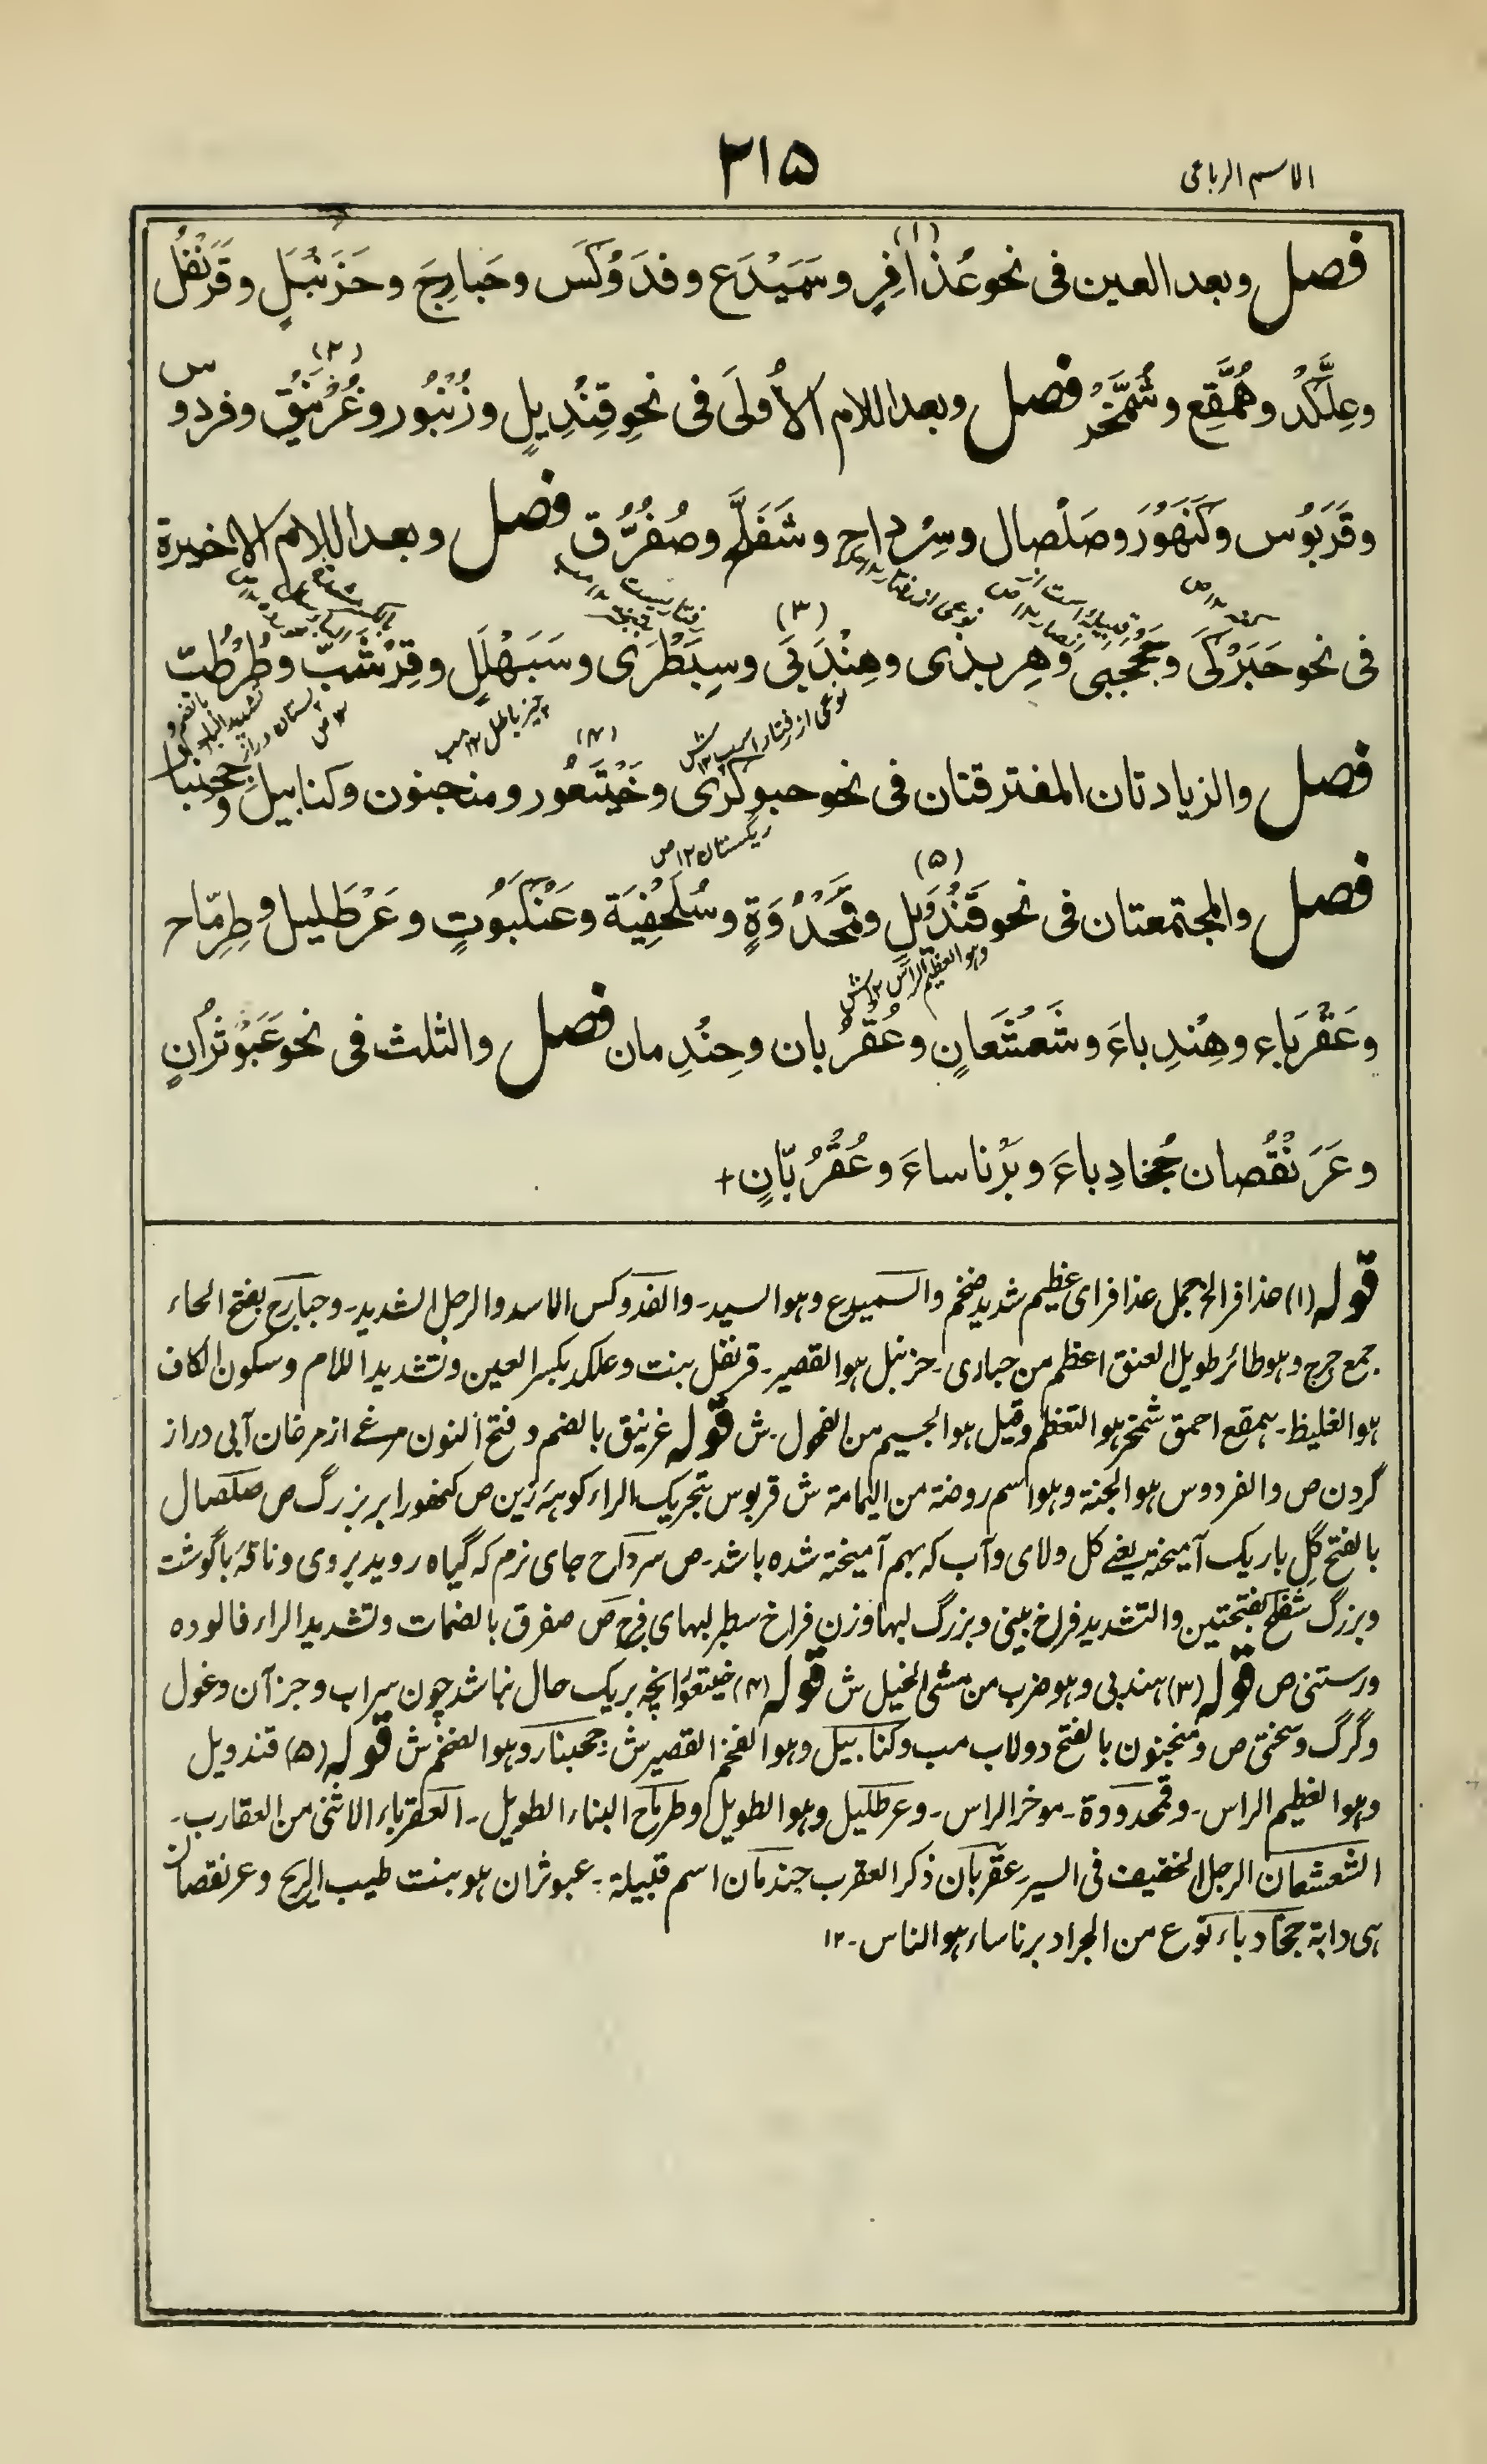 الاسم الرباعی
٢١۵
فصل وبعد العين فى نحو عُذَافِرٍ وسَمَيْدَع وفدَوْكَس وحَبارِجَ وحَزَنْبَلٍ وقَرَنْفُلٍ
(١)
وعِلَّكْد وهُمَّقِع وشُمَّخْر فصل وبعد اللام الأُولَى فى نحوِ قِنْدِيلٍ وزُنْبُور وغُرْنَيْقٍ وفردوس
(٢)
وقَرَبُوس وكَنَهْوَر وصَلْصال وسِرْداح وشَفَلَّح وصُفُرُّق فصل وبعد اللام الاخيرة
فى نحو حَبَرْكَى وجَحْجَبَى وهِربذى وهِنْدَبَى وسِبَطْرَى وسَبَهْلَلٍ وقِرْشَبّ وطُرْطُبّ
(٣)
نوعى از رفتار اسپ ١٢ ش
چيز باطل ١٢ مب
فصل والزيادتان المفترقتان فى نحو حبوكَرَى وخَيْتَعُور ومنجنون وكنابيل وجحنبار
(۴)
ريگستان ١٢ ص
فصل والمجتمعتان فى نحو قَنْدَوِيل وقَمَحْدُوَةٍ وسُلَحْفِيَة وعَنْكَبُوتٍ وعَرْطَليل وطِرِمّاح
(۵)
وهو العظيم الراس ١٢ ش
وعَقْرَباء وهِنْدِباءَ وشَعْشَعانٍ وعُقْرُبان وحِنْدِمان فصل والثلث فى نحو عَبَوْثَرانٍ
وعَرَنْقُصان جُخادِباءَ وبَرْناساءَ وعُقْرُبّانٍ +
قوله (١) عذافر الخ جمل عذافر اى عظيم شديد ضخم والسميدع وهو السيد۔ والفدوكس الاسد والرجل الشديد۔ وحبارج بفتح الحاء
جمع حبرج وهو طائر طويل العنق اعظم من حبارى۔ حزنبل هو القصير۔ قرنفل بنت وعلكد بكسر العين وتشديد اللام وسكون الكاف
هو الغليظ۔ همقع احمق شمخر هو التعظم وقيل هو الجسيم من الفحول۔ ش قوله غرنيق بالضم وفتح النون مرغے از مرغان آبى دراز
گردن ص والفردوس هو الجنة وهو اسم روضة من اليمامة ش قربوس بتحريك الراء كوهۂ زين ص كنهور ابر بزرگ ص صلصال
بالفتح گِل باريک آميخته يعنے گل ولاى وآب كه بهم آميخته شده باشد۔ ص سرداح جاى نرم كه گياه رويد بروى وناقۂ باگوشت
وبزرگ شفلح بفتحتين والتشديد فراخ بينى وبزرگ لبها وزن فراخ سطبر لبهاى فرج ص صفرق بالضمات وتشديد الراء فالوده
ورستنى ص قوله (٣) هندبى وهو ضرب من مشى الخيل ش قوله (۴) خيتعور آنچه بريک حال نباشد چون سراب وجز آن وغول
وگرگ وسختى ص ومنجنون بالفتح دولاب مب وكنابيل وهو الفخز القصير ش جحنبار وهو الضخم ش قوله (۵) قندويل
وهو العظيم الراس۔ وقمحدووة۔ موخر الراس۔ وعرطليل وهو الطويل وطرماح البناء الطويل۔ العقرباء الانثى من العقارب۔
الشعشعان الرجل الخفيف فى السير عقربان ذكر العقرب حندمان اسم قبيلة۔ عبوثران هو بنت طيب الريح وعرنقصان
هى دابة جخادباء نوع من الجراد برناساء هو الناس۔ ١٢